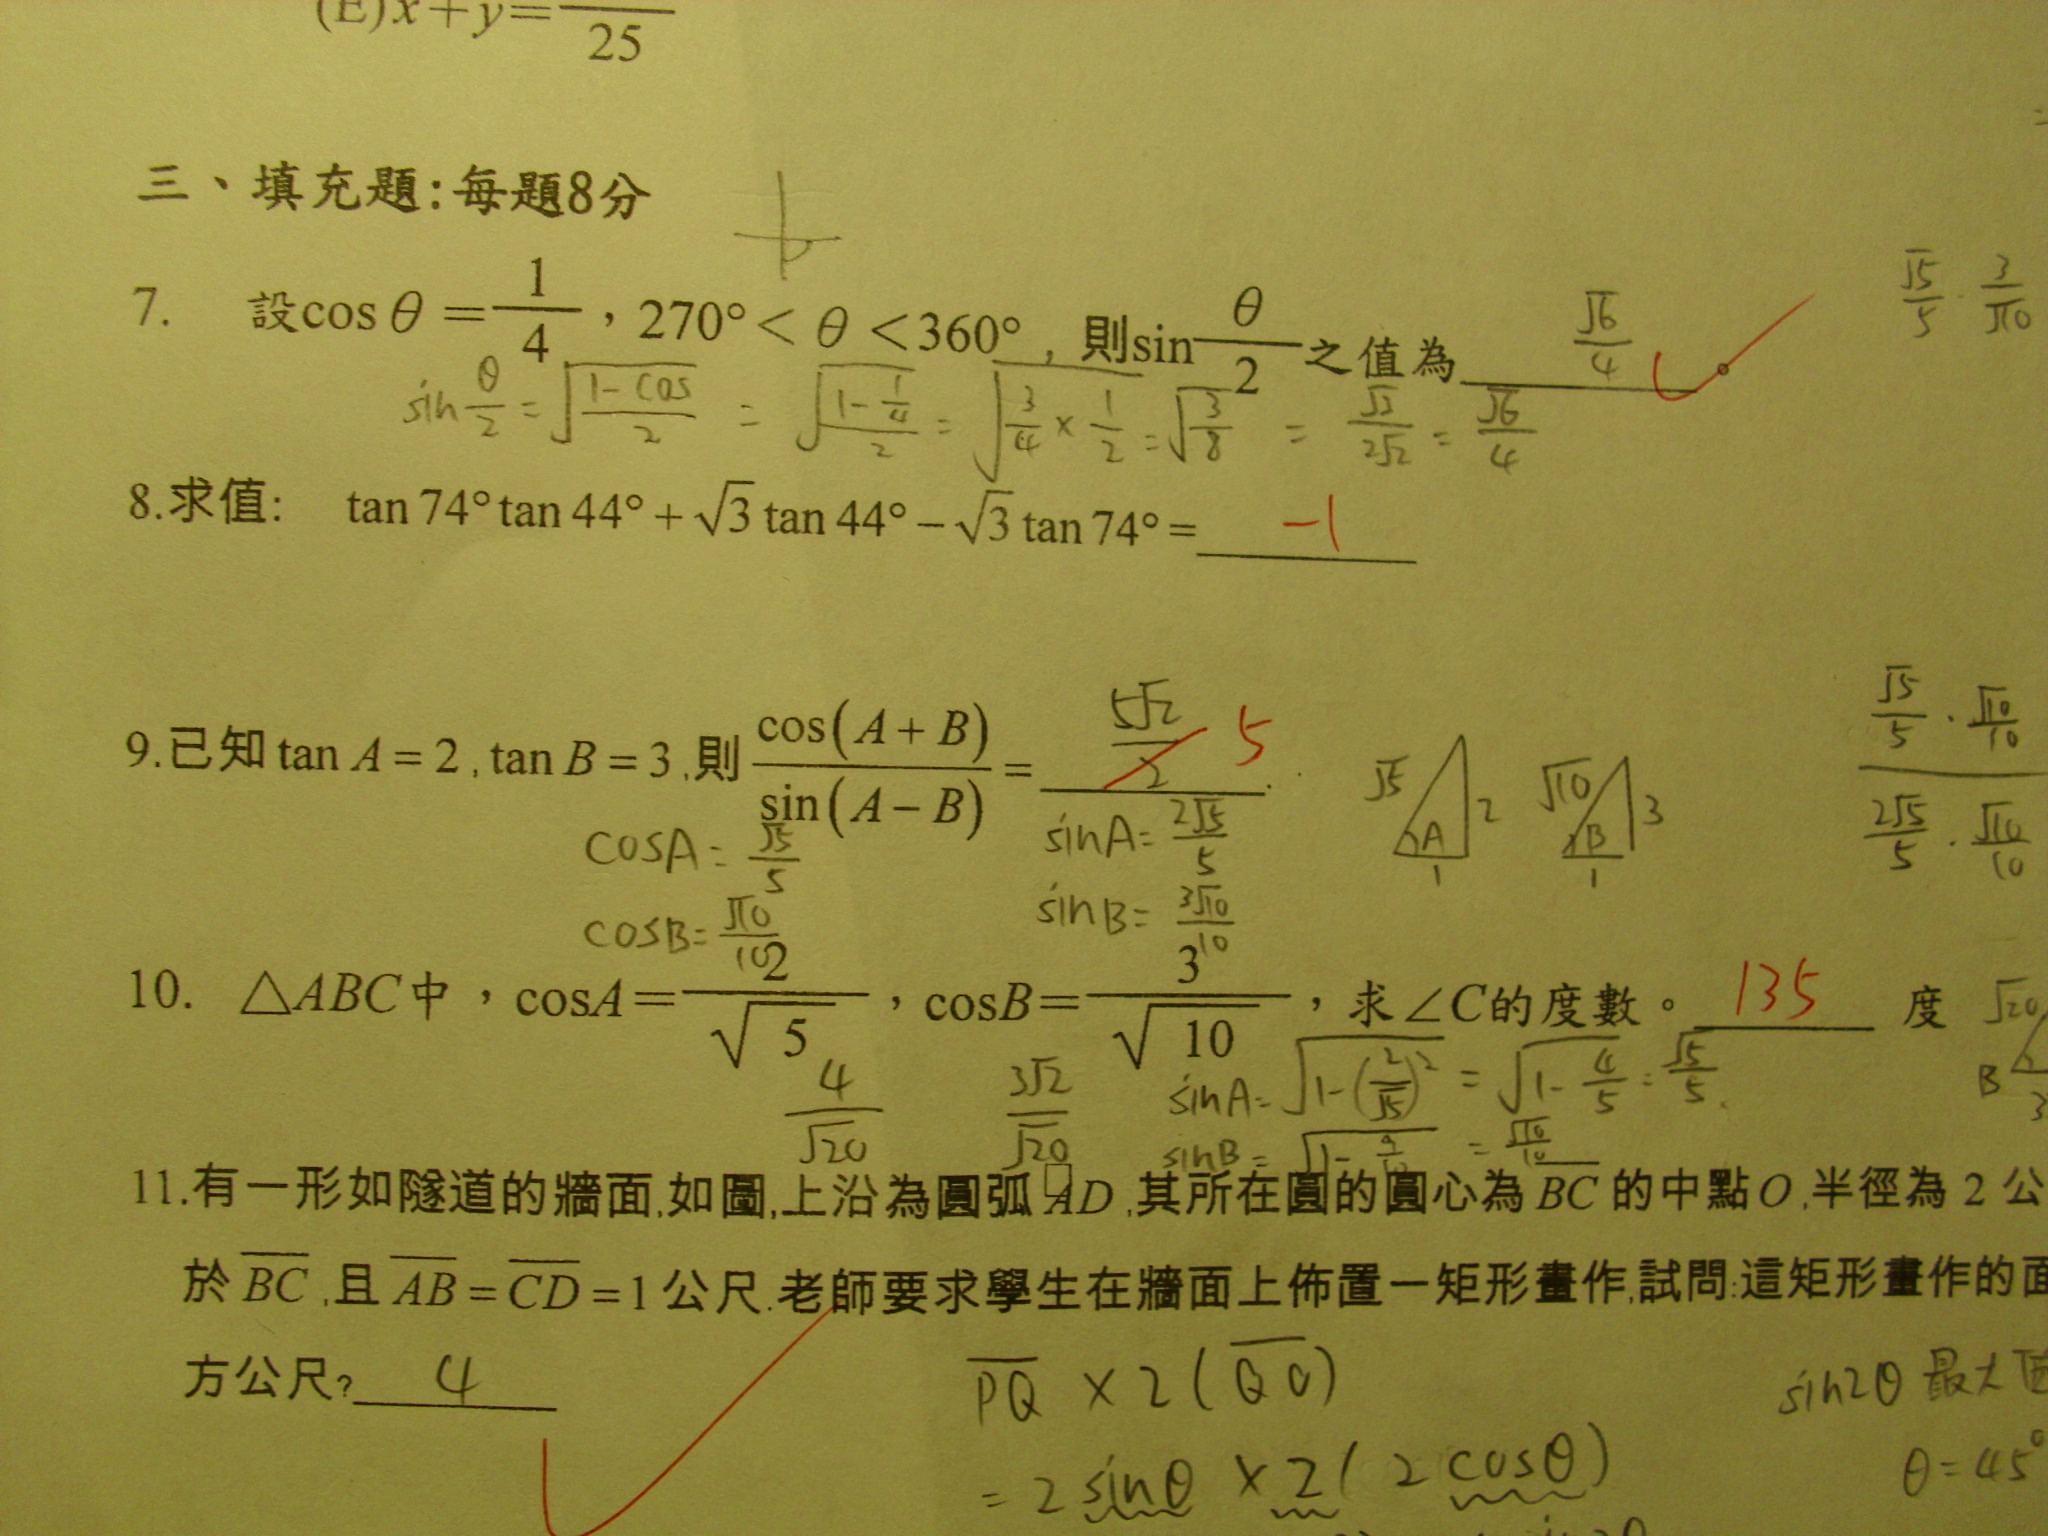 (E)x+y=
25
三、填充題:每題8分
7. 設cos θ = 1/4，270°< θ <360°，則sin θ/2 之值為 √6/4
√5/5 · 3/√10
sin θ/2 = √((1-cos)/2) = √((1-1/4)/2) = √(3/4 × 1/2) = √(3/8) = √3/2√2 = √6/4
8.求值: tan 74° tan 44° + √3 tan 44° − √3 tan 74° = -1
9.已知 tan A = 2 , tan B = 3 ,則 cos(A + B)/sin(A − B) = 5√2/2 5
√5 2 A 1 √10 3 B 1
√5/5 · √10/10
2√5/5 · √10/10
cosA = √5/5 sinA = 2√5/5
cosB = √10/10 sinB = 3√10/10
10. △ABC中，cosA = 2/√5，cosB = 3/√10，求∠C的度數。 135 度
√20 B 3
4/√20 3√2/√20 sinA = √(1-(2/√5)²) = √(1-4/5) = √5/5
sinB = √(1-9/10) = √10/10
11.有一形如隧道的牆面,如圖,上沿為圓弧 AD ,其所在圓的圓心為 BC 的中點O ,半徑為 2 公
於 BC ,且 AB = CD = 1 公尺.老師要求學生在牆面上佈置一矩形畫作,試問:這矩形畫作的面
方公尺? 4
PQ × 2 ( QO )
sin2θ 最大值
= 2 sinθ × 2 ( 2 cosθ )
θ = 45°